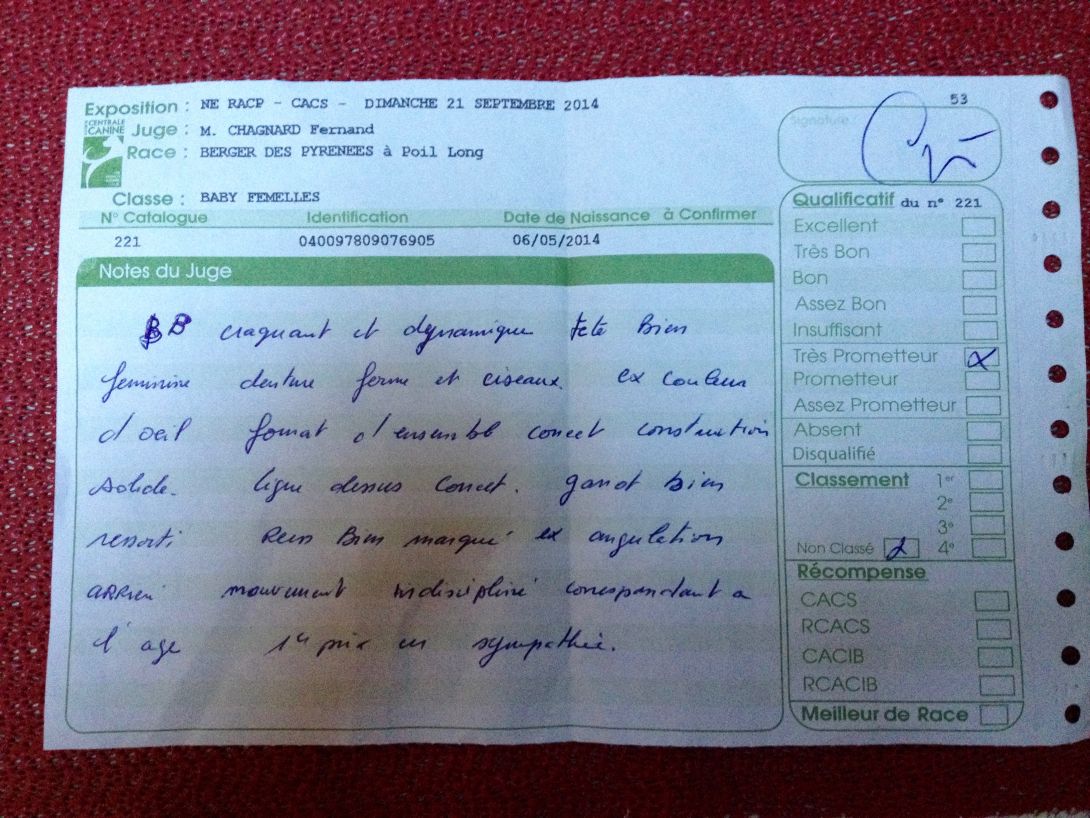 Exposition : NE RACP - CACS - DIMANCHE 21 SEPTEMBRE 2014
53
CENTRALE
CANINE
Juge : M. CHAGNARD Fernand
Signature :
Race : BERGER DES PYRENEES à Poil Long
Classe : BABY FEMELLES
N° Catalogue Identification Date de Naissance à Confirmer
221 040097809076905 06/05/2014
Notes du Juge
BB craquant et dynamique tete Bien
feminine denture ferme et ciseaux. ex couleur
d'oeil format d'ensemble correct construction
solide. ligne dessus correct. garrot bien
ressorti Rein Bien marqué ex angulation
ARRIERE mouvement indiscipliné correspondant a
l'age 1er prix en sympathie.
Qualificatif du n° 221
Excellent
Très Bon
Bon
Assez Bon
Insuffisant
Très Prometteur X
Prometteur
Assez Prometteur
Absent
Disqualifié
Classement 1er
2e
3e
Non Classé X 4e
Récompense
CACS
RCACS
CACIB
RCACIB
Meilleur de Race